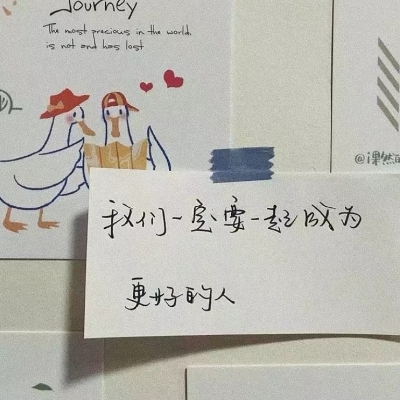 Journey
The most precious in the world.
is not and has lost
@i果然
我们一定要一起成为
更好的人